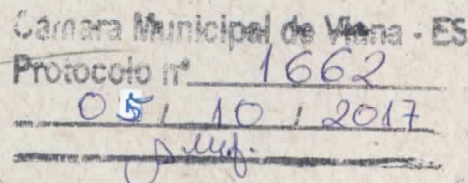 Câmara Municipal de Viana - ES
Protocolo nº 1662
05 / 10 / 2017